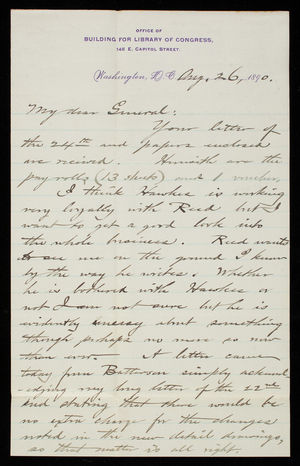 OFFICE OF
BUILDING FOR LIBRARY OF CONGRESS,
145 E. CAPITOL STREET.
Washington, D. C. Aug. 26, 1890.
My dear General:
Your letter of
the 24th and papers enclosed
are received. Herewith are the
pay rolls (13 sheets) and 1 voucher.
I think Hawkes is working
very loyally with Reed but I
want to get a good look into
the whole business. Reed wants
to see me on the ground I know
by the way he writes. Whether
he is bothered with Hawkes or
not I am not sure but he is
evidently uneasy about something
though perhaps no more so now
than ever. A letter came
today from Batterson simply acknowl-
edging my long letter of the 22nd
and stating that there would be
no extra charge for the changes
noted in the new detail drawings,
so that matter is all right.